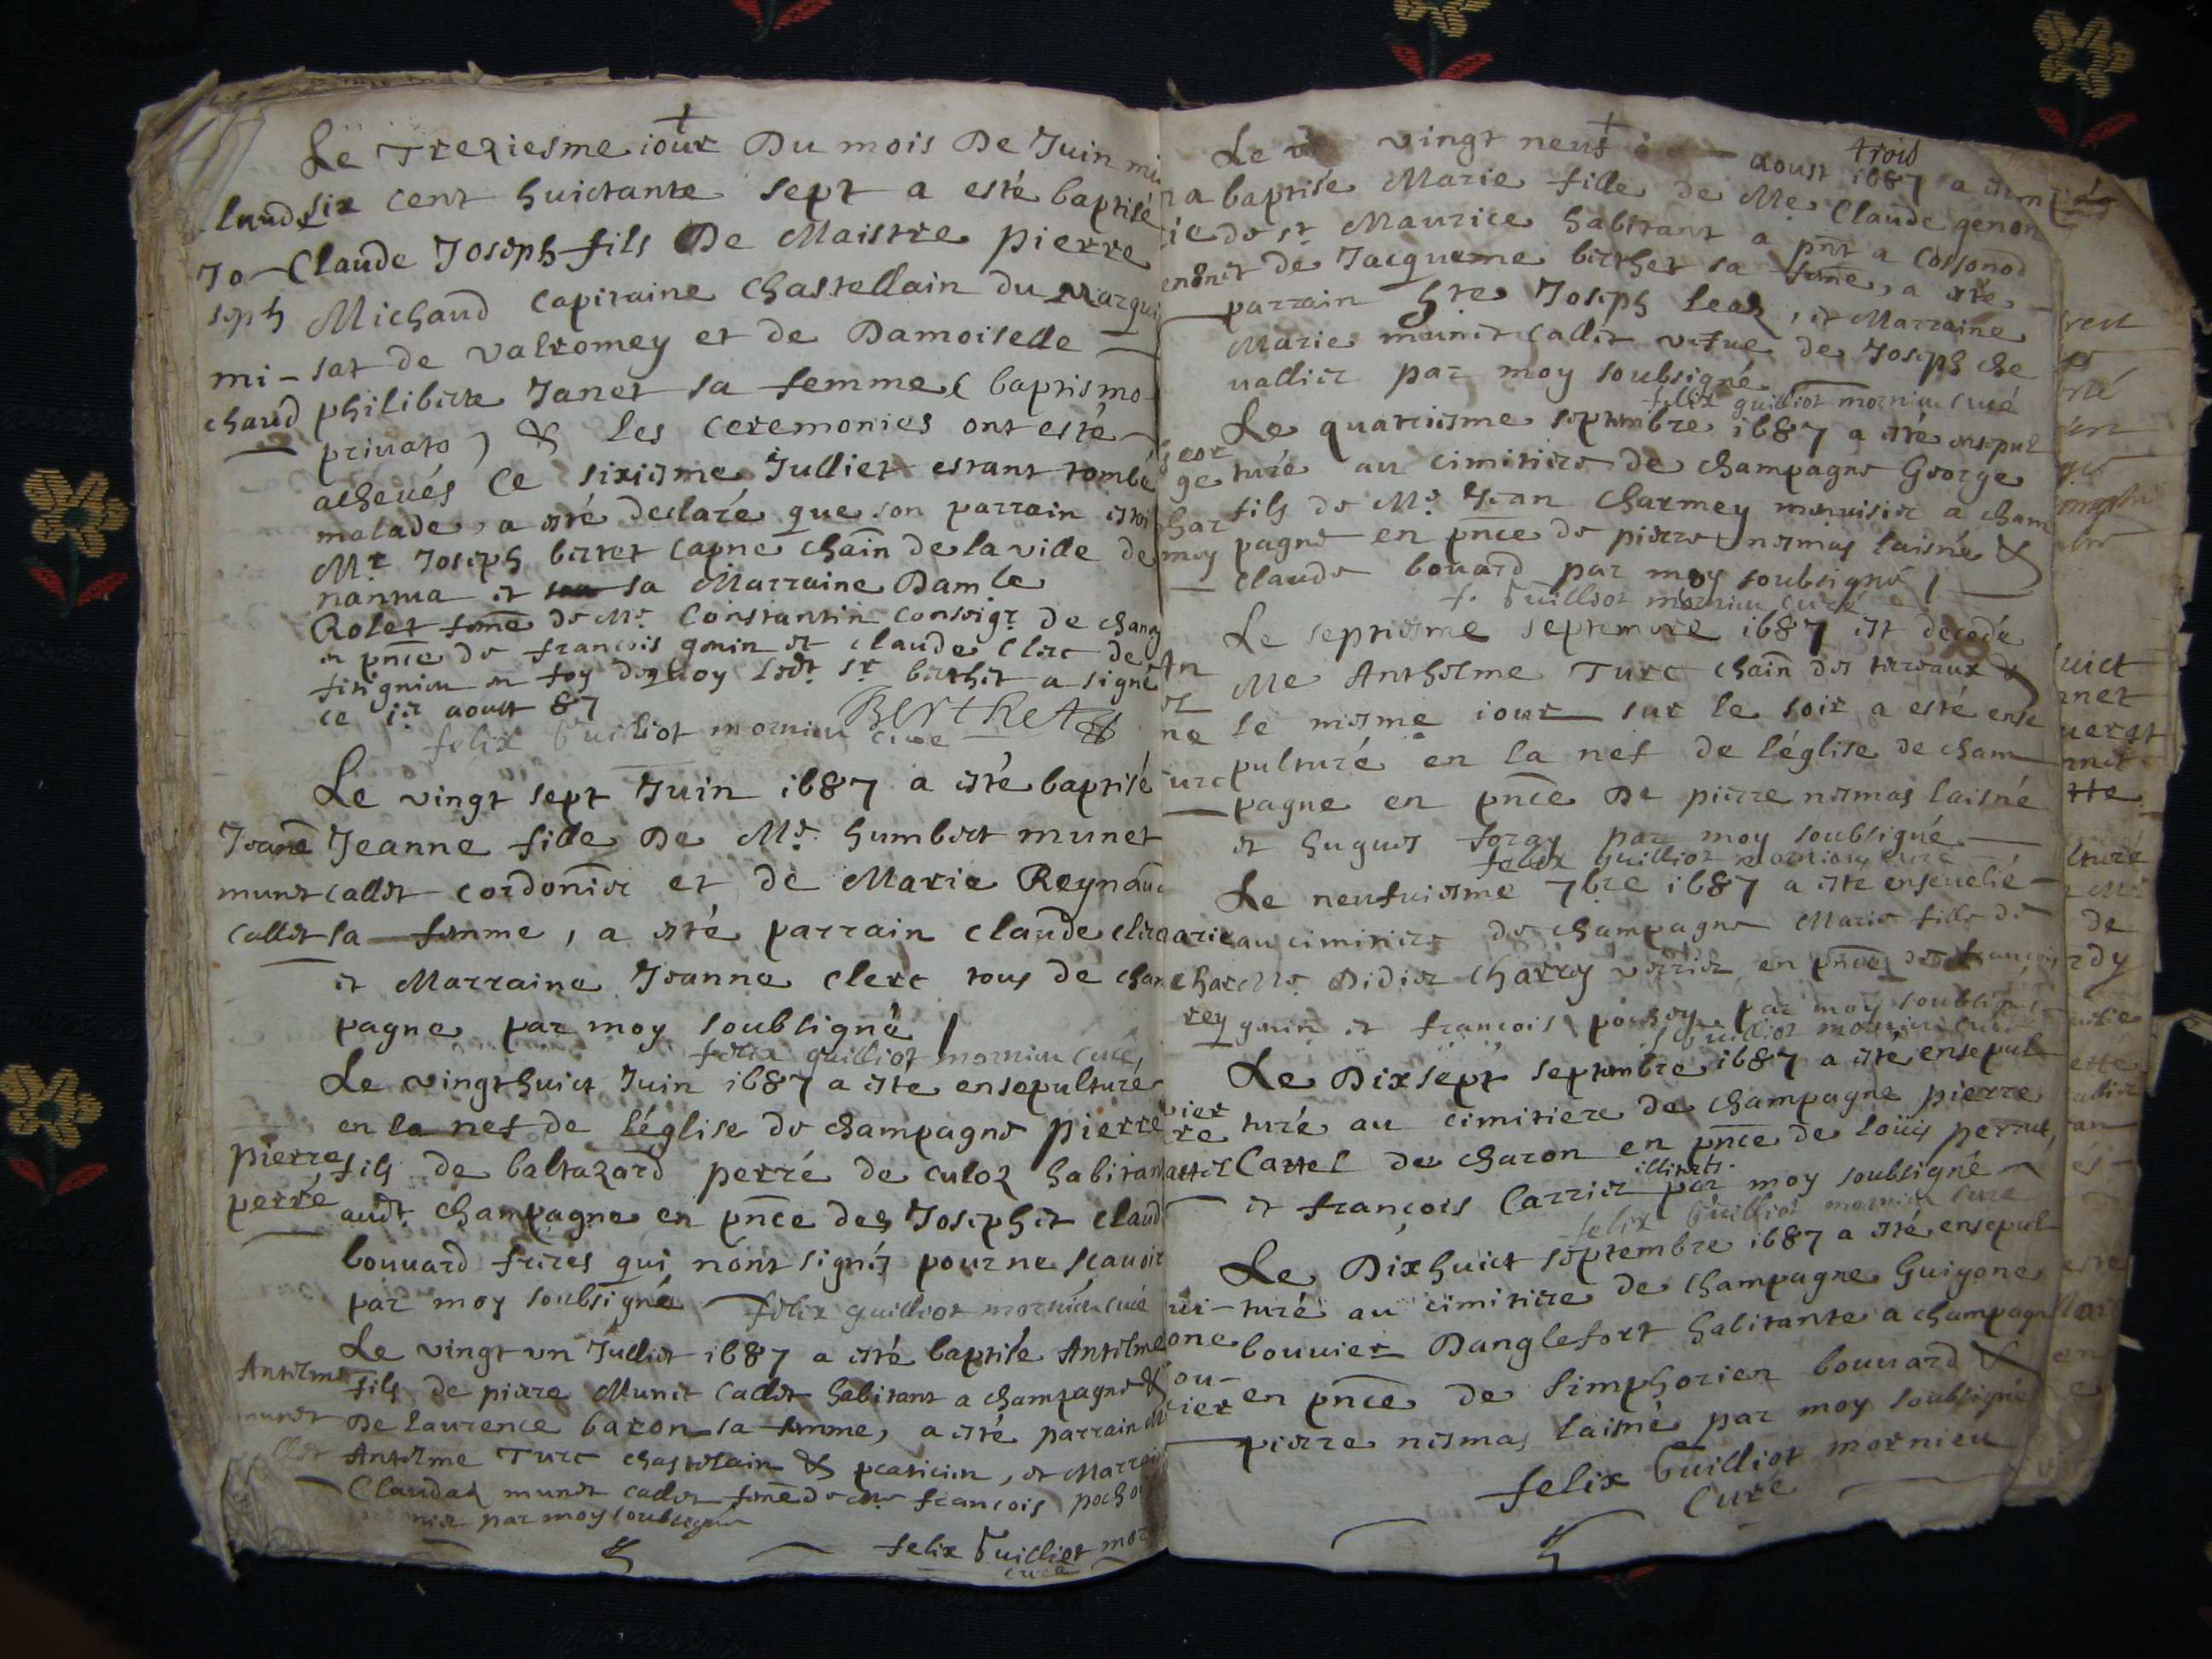 Le Treziesme jour Du mois De Juin
six cent huictante sept a esté baptisé
Claude Joseph fils De Maistre pierre
Michaud Capitaine Chastellain du Marqui
sat de valromey et de Damoiselle
philiberte Janet sa femme (baptismo
privato) & les ceremonies ont esté
achevés le sixiesme Julliet estant tombé
malade, a esté declaré que son parrain
Mr Joseph bertet chãin de la ville de
nantua et sa Marraine Damle
Rolet fem̃e de Mr Constantin
en pñce de françois gonin et claude Clerc de
en foy dequoy ledt Sr berthet a signé
ce aoust 87
BertHet
felix Guilliot mornieu curé
Le vingt sept Juin 1687 a esté baptisé
Jeanne fille De Mr humbert munet
callet cordonier et de Marie Reynaud
sa femme, a esté parrain claude clerc
et Marraine Jeanne Clerc tous de cham
pagne par moy soubsigné
felix guilliot mornieu curé
Le vingt huict Juin 1687 a esté ensepulturé
en la nef de l'église de champagne pierre
fils de baltazard perré de culoz habitan
audt champagne en pñce des Joseph et claud
bouuard freres qui n'ont signés pour ne scauoir
par moy soubsigné felix guilliot mornieu curé
Le vingt un Julliet 1687 a esté baptisé Antelme
fils de pierre Munet callet habitant a champagne &
De laurence baron sa femme, a esté parrain
Antelme Turc chastelain & praticien, et Marrai
Claudaz munet callet fem̃e de françois
par moy soubsigné
felix Guilliot mor
curé
laude
Jo-
seph
mi-
chaud
Jeane
munet
callet
pierre
perré
Antelme
munet
Le vingt neuf aoust 1687 a
trois
baptisé Marie fille de Me Claude genon
de st Maurice habitant a pñt a Cossonod
et de Jacqueme berthet sa fem̃e, a esté
parrain Joseph leaz, et Marraine
Marie munet callet vefve de Joseph che
uallier par moy soubsigné
felix guilliot mornieu curé
Le quatriesme septembre 1687 a esté ensepul
turé au cimitiere de champagne George
fils de Mr Jean Charmey menuisier a cham
pagne en pñce de pierre nesmas laisné &
claude bouard par moy soubsigné
f. Guilliot mornieu curé
Le septiesme septembre 1687 est decedé
Me Anthelme Turc chãin des terreaux &
le mesme jour sur le soir a esté ense
pulturé en la nef de l'église de cham
pagne en pñce De pierre nesmas laisné
et hugues foray par moy soubsigné
felix guilliot mornieu curé
Le neufuiesme 7bre 1687 a esté enseuelié
au cimitiere de champagne Marie fille de
Me Didier Charrey verrier en pñce de françois
gonin et françois par moy soubsigné
Guilliot mornieu curé
Le Dix sept septembre 1687 a esté ensepul
turé au cimitiere de champagne pierre
Cattel de charon en pñce de loüis perrut
et françois Carrier illiterés par moy soubsigné
felix Guilliot mornieu curé
Le Dix huict septembre 1687 a esté ensepul
turé au cimitiere de champagne Guigone
bouuier Danglefort habitante a champagn
en pñce de simphorien bouuard &
pierre nesmas laisné par moy soubsigné
felix Guilliot mornieu
Curé
Geor
ge
char
mey
An
ne
urc
arie
char
rey
pier
re
attel
ui-
one
ou-
ier